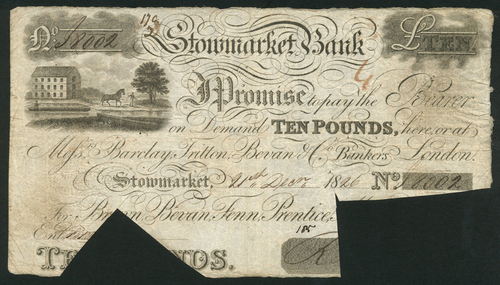 No 18002 Stowmarket Bank £TEN
I Promise to pay the Bearer
on Demand TEN POUNDS, here, or at
Messrs Barclay, Tritton, Bevan & Co. Bankers, London.
Stowmarket, 21st Decr 1826 No 18002
For Brown, Bevan, Fenn, Prentice,
TEN POUNDS.